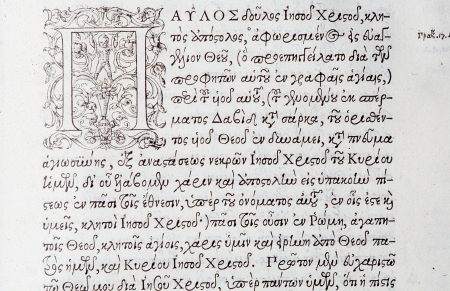 ΠΑΥΛΟΣ δοῦλος Ἰησοῦ Χριστοῦ, κλη-
Πραξ.
τὸς ἀπόστολος, ἀφωρισμένος εἰς εὐαγ-
γέλιον Θεοῦ, (ὃ προεπηγγείλατο διὰ τῶν
προφητῶν αὐτοῦ ἐν γραφαῖς ἁγίαις,)
περὶ τοῦ υἱοῦ αὐτοῦ, (τοῦ γενομένου ἐκ σπέρ-
ματος Δαβὶδ κατὰ σάρκα, τοῦ ὁρισθέν-
τος υἱοῦ Θεοῦ ἐν δυνάμει, κατὰ πνεῦμα
ἁγιωσύνης, ἐξ ἀναστάσεως νεκρῶν Ἰησοῦ Χριστοῦ τοῦ Κυρίου
ἡμῶν, δι' οὗ ἐλάβομεν χάριν καὶ ἀποστολὴν εἰς ὑπακοὴν πί-
στεως ἐν πᾶσι τοῖς ἔθνεσιν, ὑπὲρ τοῦ ὀνόματος αὐτοῦ, ἐν οἷς ἐστε καὶ
ὑμεῖς, κλητοὶ Ἰησοῦ Χριστοῦ) πᾶσι τοῖς οὖσιν ἐν Ρώμῃ, ἀγαπη-
τοῖς Θεοῦ, κλητοῖς ἁγίοις, χάρις ὑμῖν καὶ εἰρήνη ἀπὸ Θεοῦ πα-
τρὸς ἡμῶν, καὶ Κυρίου Ἰησοῦ Χριστοῦ. Πρῶτον μὲν εὐχαριστῶ
τῷ Θεῷ μου διὰ Ἰησοῦ Χριστοῦ, ὑπὲρ πάντων ὑμῶν, ὅτι ἡ πίστις